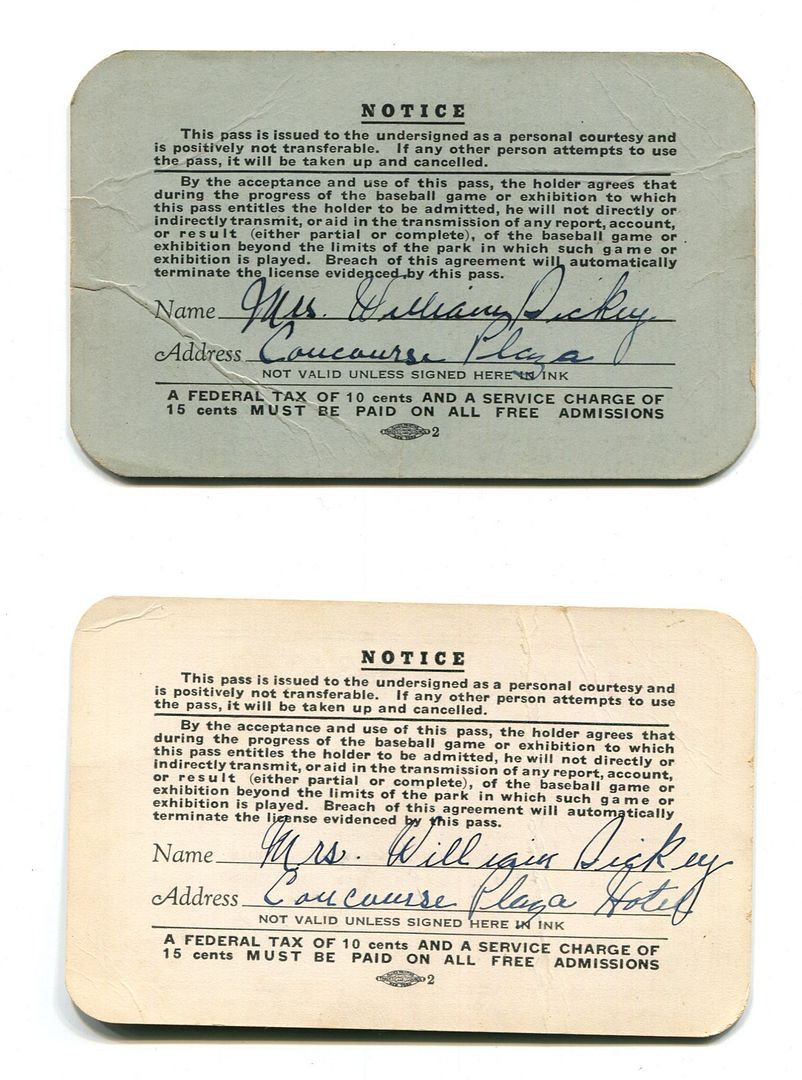 NOTICE
This pass is issued to the undersigned as a personal courtesy and
is positively not transferable. If any other person attempts to use
the pass, it will be taken up and cancelled.
By the acceptance and use of this pass, the holder agrees that
during the progress of the baseball game or exhibition to which
this pass entitles the holder to be admitted, he will not directly or
indirectly transmit, or aid in the transmission of any report, account,
or result (either partial or complete), of the baseball game or
exhibition beyond the limits of the park in which such game or
exhibition is played. Breach of this agreement will automatically
terminate the license evidenced by this pass.
Name Mrs. William Dickey
Address Concourse Plaza
NOT VALID UNLESS SIGNED HERE IN INK
A FEDERAL TAX OF 10 cents AND A SERVICE CHARGE OF
15 cents MUST BE PAID ON ALL FREE ADMISSIONS
2
NOTICE
This pass is issued to the undersigned as a personal courtesy and
is positively not transferable. If any other person attempts to use
the pass, it will be taken up and cancelled.
By the acceptance and use of this pass, the holder agrees that
during the progress of the baseball game or exhibition to which
this pass entitles the holder to be admitted, he will not directly or
indirectly transmit, or aid in the transmission of any report, account,
or result (either partial or complete), of the baseball game or
exhibition beyond the limits of the park in which such game or
exhibition is played. Breach of this agreement will automatically
terminate the license evidenced by this pass.
Name Mrs. William Dickey
Address Concourse Plaza Hotel
NOT VALID UNLESS SIGNED HERE IN INK
A FEDERAL TAX OF 10 cents AND A SERVICE CHARGE OF
15 cents MUST BE PAID ON ALL FREE ADMISSIONS
2